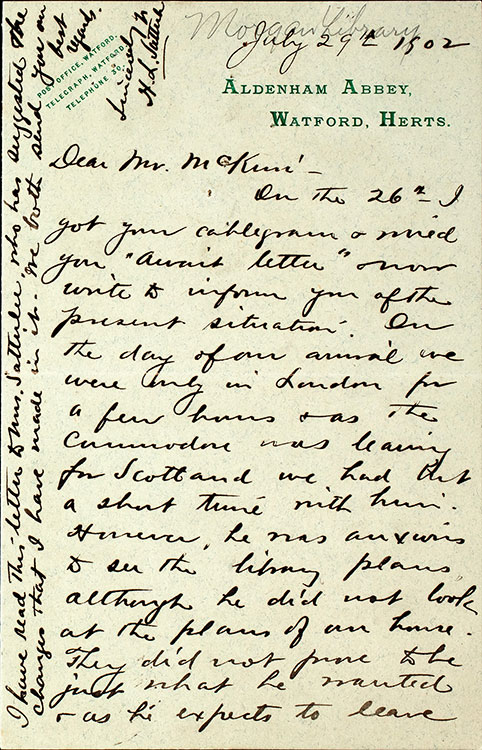 Morgan Library
July 29th 1902
POST OFFICE, WATFORD.
TELEGRAPH, WATFORD
TELEPHONE 30.
ALDENHAM ABBEY,
WATFORD, HERTS.
Dear Mr. McKim -
On the 26th I
got your cablegram & wired
you "Await letter" & now
write to inform you of the
present situation. On
the day of our arrival we
were only in London for
a few hours & as the
Commodore was leaving
for Scotland we had but
a short time with him.
However, he was anxious
to see the library plans
although he did not look
at the plans of our house.
They did not prove to be
just what he wanted
& as he expects to leave
I have read this letter to Mrs. Satterlee who has suggested the
changes that I have made in it - We both send you our
best
regards.
Sincerely yr
H. L. Satterlee